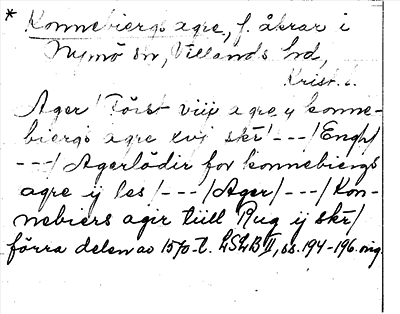 * Konnebiergs agre, f. åkrar i
Nymö sn, Villands hd,
Krist. l.
Ager / Först viij agre y konne-
biergs agre xvj skr / - - - / Engh /
- - - / Agerlödir for konnebiergs
agre ij les / - - - / Ager / - - - / Kon-
nebiers agir tiill Rug ij skr /
förra delen av 1570-t. LSLB II, ss. 194-196. orig.